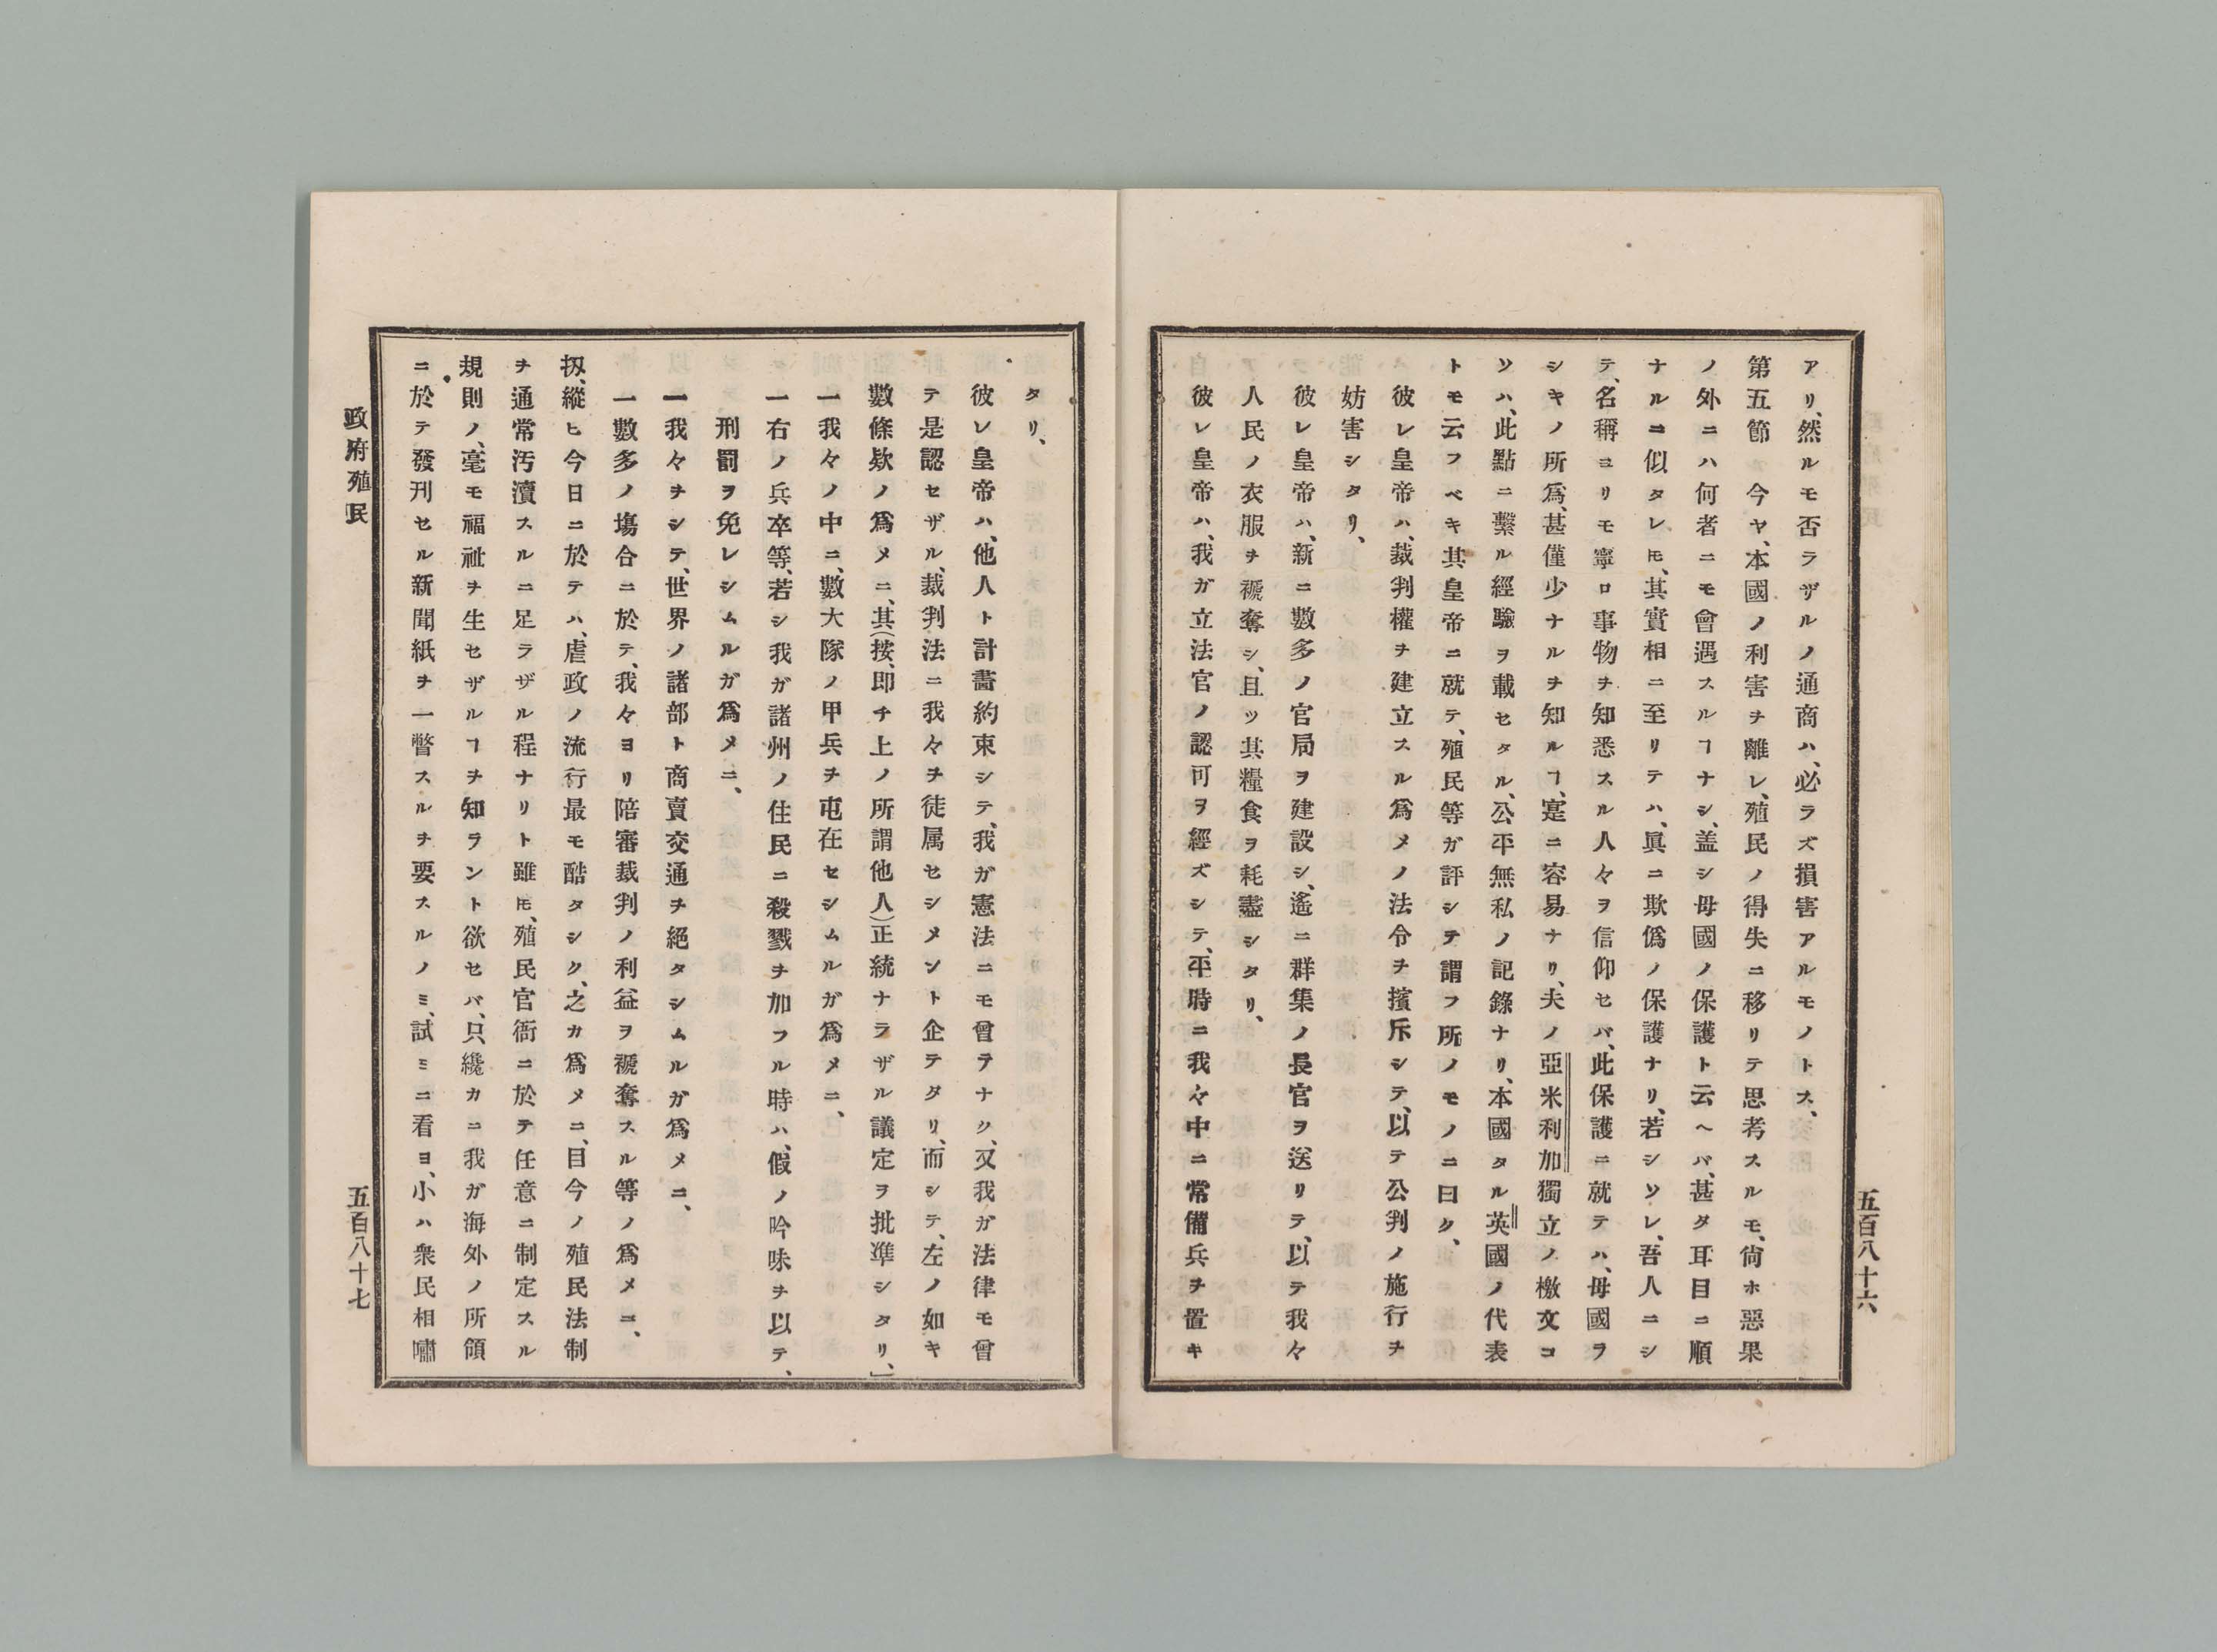 アリ、然ルモ否ラザルノ通商ハ、必ラズ損害アルモノトス、
第五節　今ヤ、本國ノ利害ヲ離レ、殖民ノ得失ニ移リテ思考スルモ、尙ホ惡果
ノ外ニハ何者ニモ會遇スルヿナシ、盖シ母國ノ保護ト云ヘバ、甚タ耳目ニ順
ナルニ似タレ𪜈、其實相ニ至リテハ、眞ニ欺僞ノ保護ナリ、若シソレ、吾人ニシ
テ、名稱ヨリモ寧ロ事物ヲ知悉スル人々ヲ信仰セバ、此保護ニ就テハ、母國ヲ
シキノ所爲、甚僅少ナルヲ知ルヿ、寔ニ容易ナリ、夫ノ亞米利加獨立ノ檄文コ
ソハ、此點ニ繫ル經驗ヲ載セタル、公平無私ノ記錄ナリ、本國タル英國ノ代表
トモ云フベキ其皇帝ニ就テ、殖民等ガ評シテ謂フ所ノモノニ曰ク、
彼レ皇帝ハ、裁判權ヲ建立スル爲メノ法令ヲ擯斥シテ、以テ公判ノ施行ヲ
妨害シタリ、
彼レ皇帝ハ、新ニ數多ノ官局ヲ建設シ、遙ニ群集ノ長官ヲ送リテ、以テ我々
人民ノ衣服ヲ褫奪シ、且ツ其糧食ヲ耗盡シタリ、
彼レ皇帝ハ、我ガ立法官ノ認可ヲ經ズシテ、平時ニ我々中ニ常備兵ヲ置キ
五百八十六
タリ、
彼レ皇帝ハ、他人ト計畫約束シテ、我ガ憲法ニモ曾テナク、又我ガ法律モ曾
テ是認セザル、裁判法ニ我々ヲ徒属セシメント企テタリ、而シテ、左ノ如キ
數條欵ノ爲メニ、其(按、即チ上ノ所謂他人)正統ナラザル議定ヲ批準シタリ、」
一我々ノ中ニ、數大隊ノ甲兵ヲ屯在セシムルガ爲メニ、
一右ノ兵卒等、若シ我ガ諸州ノ住民ニ殺戮ヲ加フル時ハ、假ノ吟味ヲ以テ、
刑罰ヲ免レシムルガ爲メニ、
一我々ヲシテ、世界ノ諸部ト商賣交通ヲ絕タシムルガ爲メニ、
一數多ノ塲合ニ於テ、我々ヨリ陪審裁判ノ利益ヲ褫奪スル等ノ爲メニ、
扨、縱ヒ今日ニ於テハ、虐政ノ流行最モ酷タシク、之カ爲メニ、目今ノ殖民法制
ヲ通常汚瀆スルニ足ラザル程ナリト雖𪜈、殖民官衙ニ於テ任意ニ制定スル
規則ノ、毫モ福祉ヲ生セザルヿヲ知ラント欲セバ、只纔カニ我ガ海外ノ所領
ニ於テ發刊セル新聞紙ヲ一瞥スルヲ要スルノミ、試ミニ看ヨ、小ハ衆民相嘯
政府殖民
五百八十七